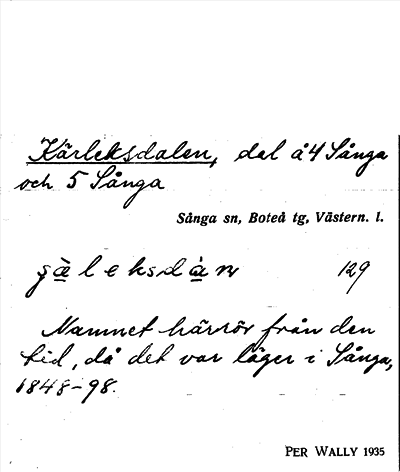 Kärleksdalen, dal å 4 Sånga
och 5 Sånga
Sånga sn, Boteå tg, Västern. l.
129
Namnet härrör från den
tid, då det var läger i Sånga,
1848-98.
PER WALLY 1935